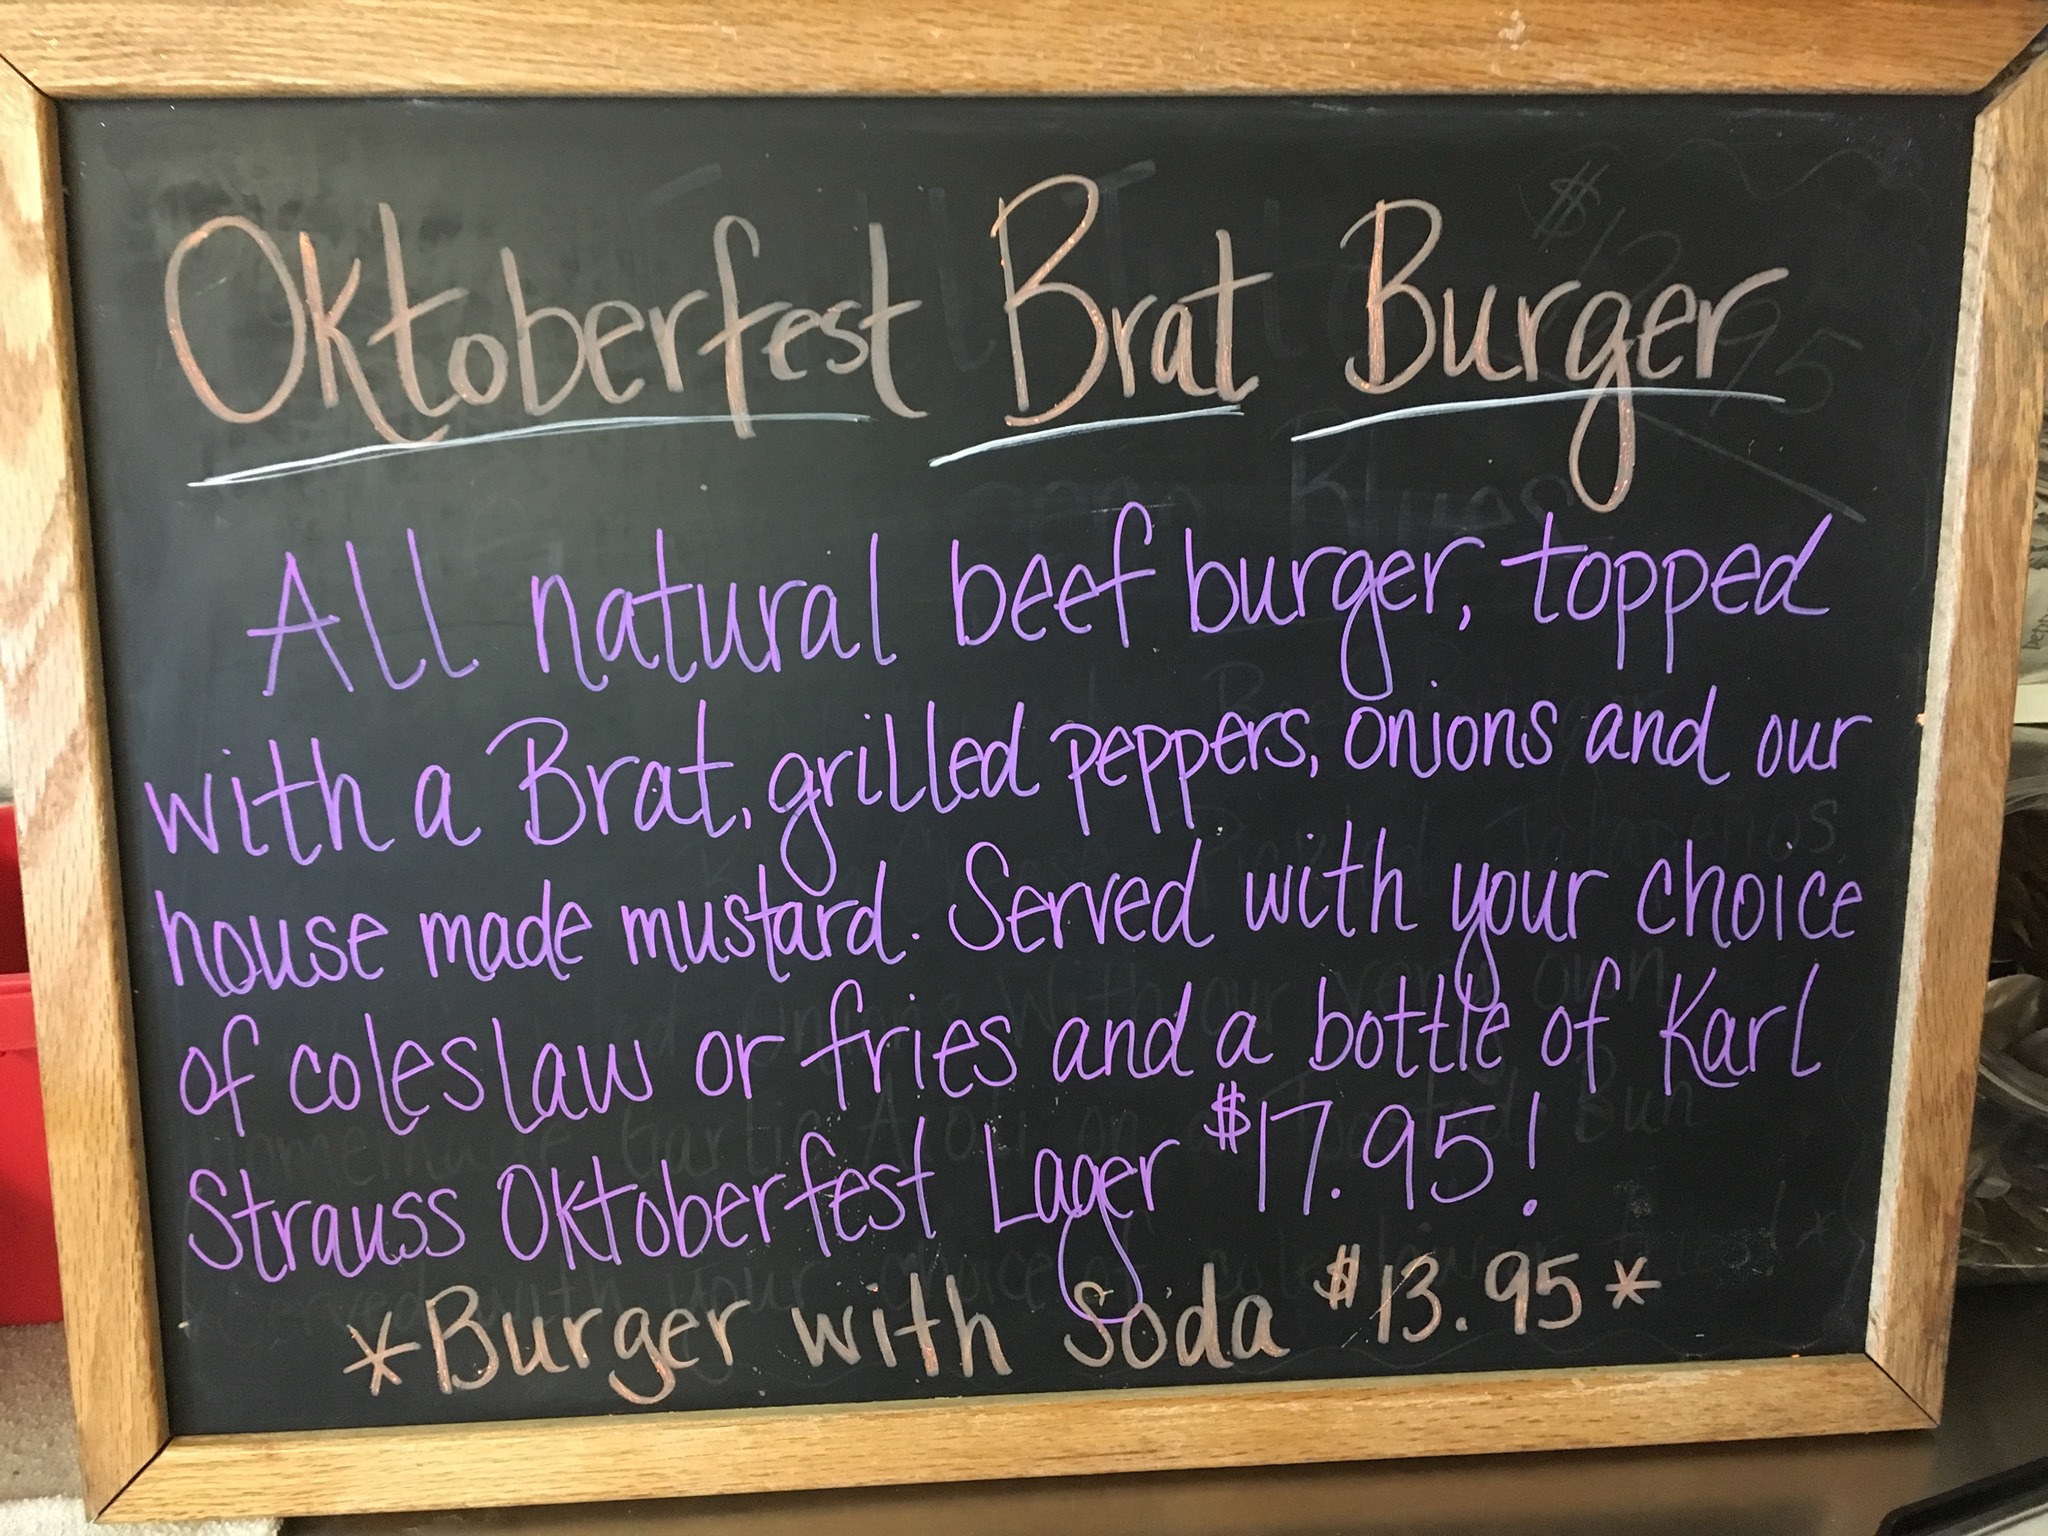 Oktoberfest Brat Burger
All natural beef burger, topped
with a Brat, grilled peppers, onions and our
house made mustard. Served with your choice
of coleslaw or fries and a bottle of Karl
Strauss Oktoberfest Lager $17.95!
*Burger with Soda $13.95*